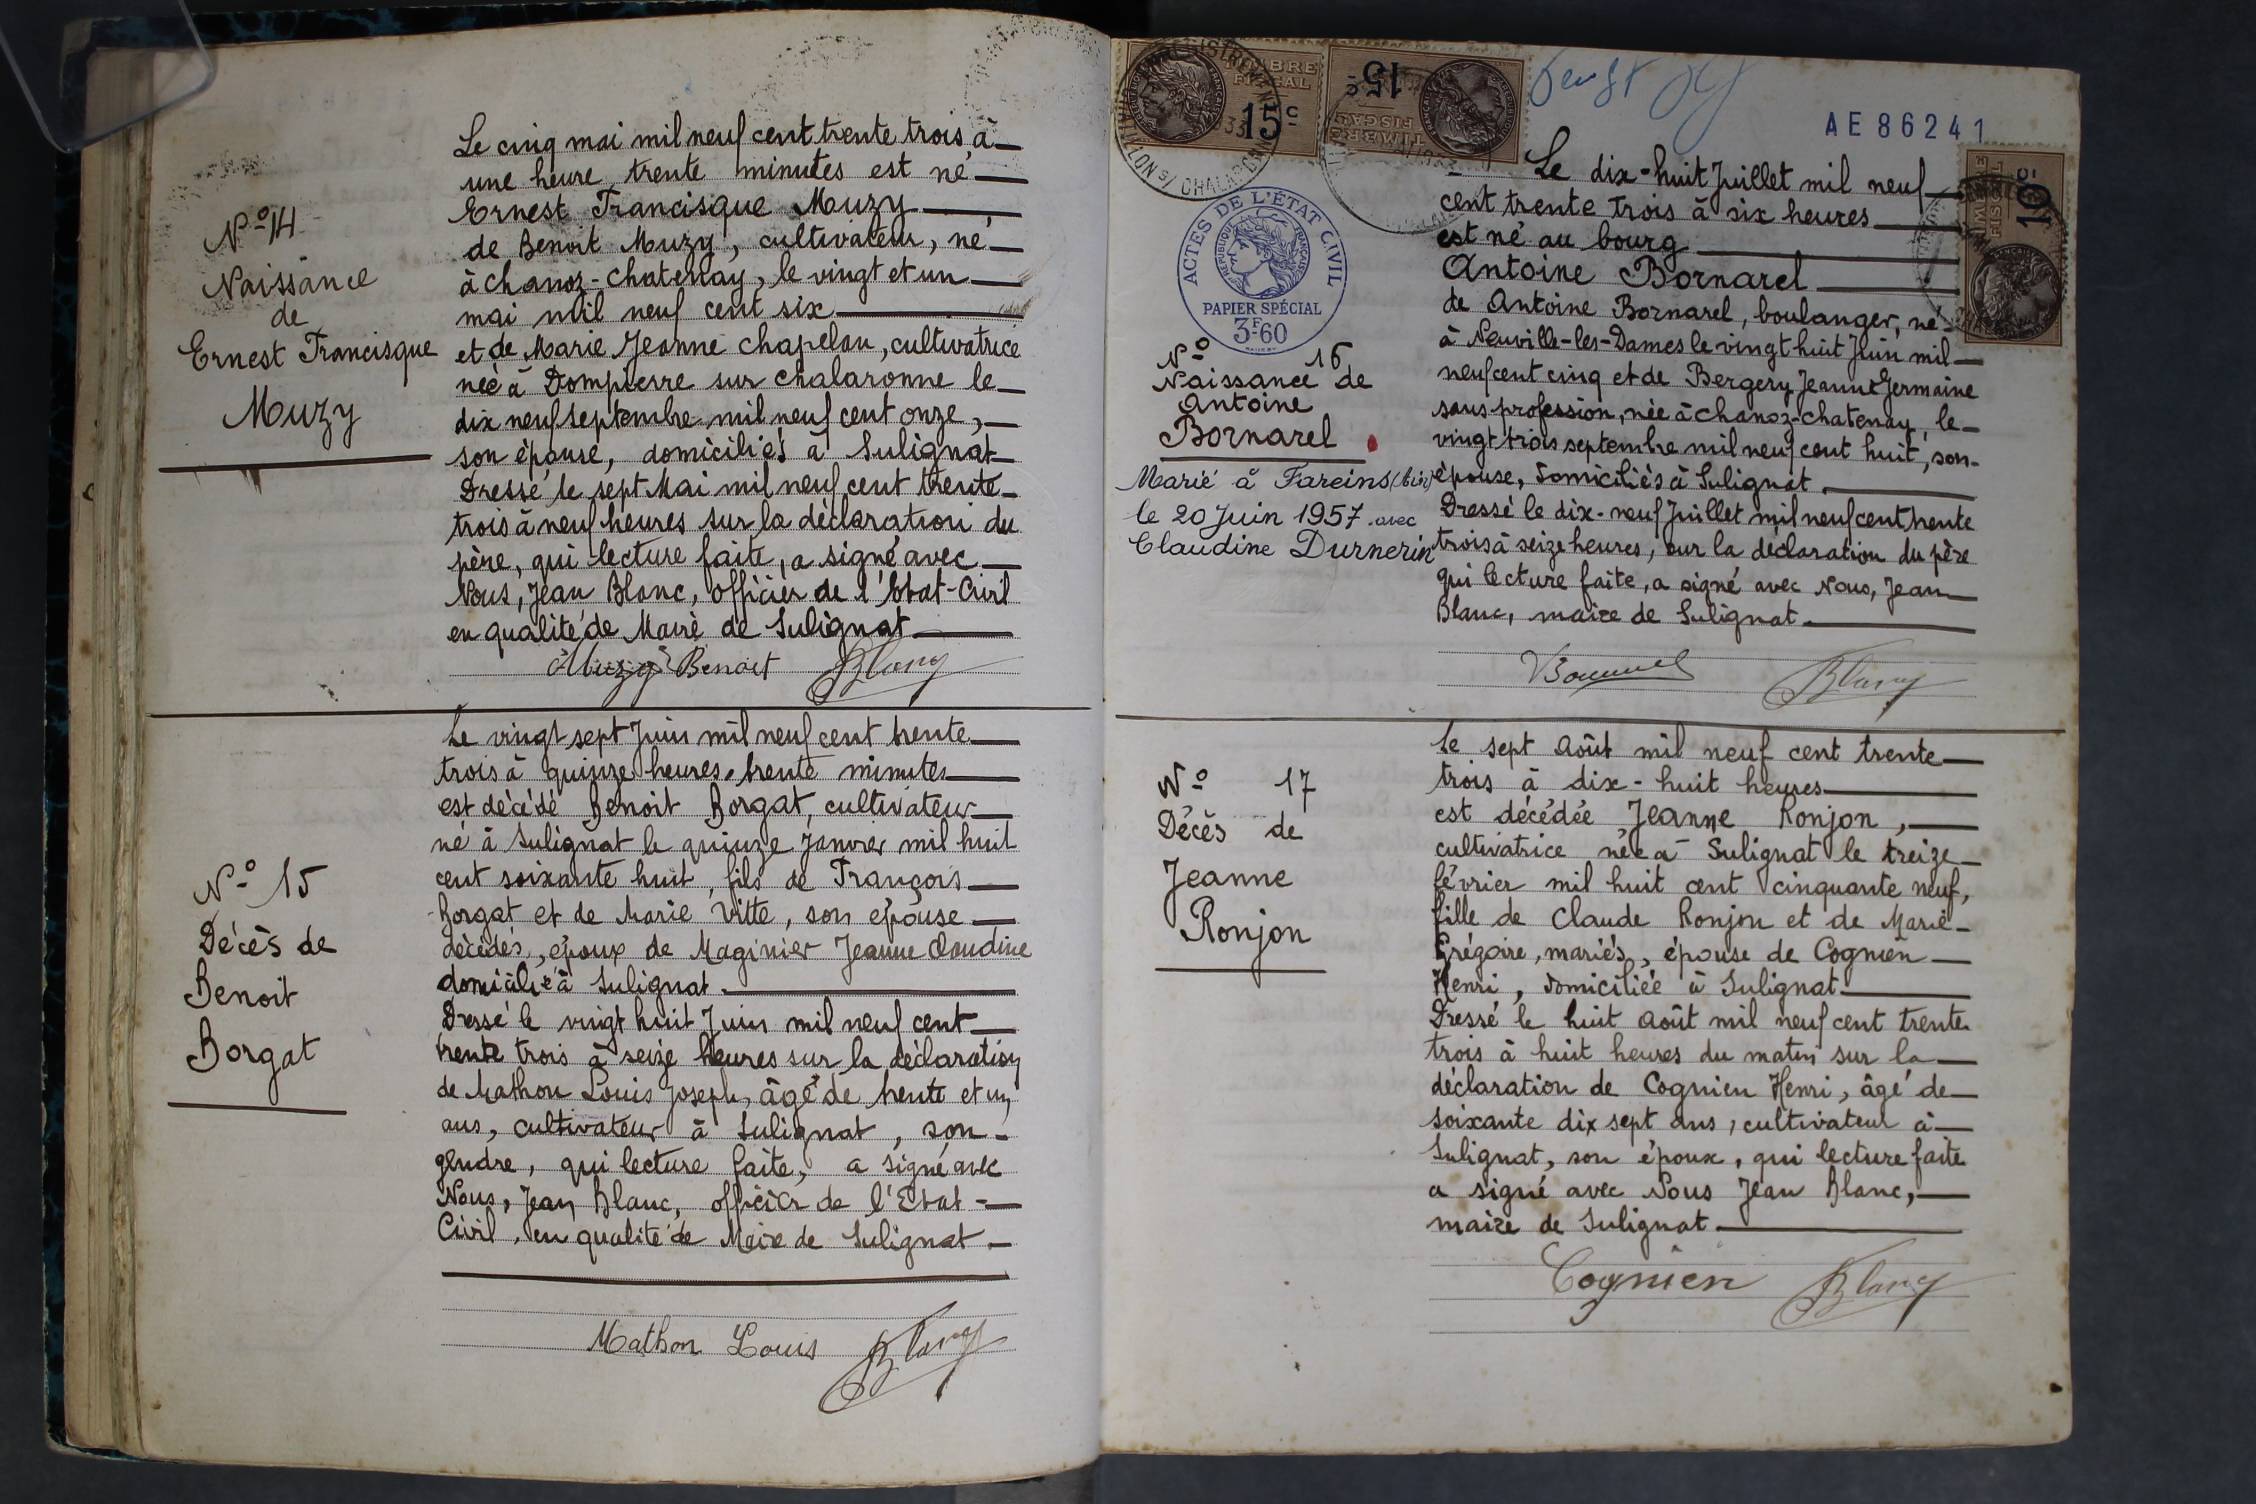 N° 14
Naissance
de
Ernest Francisque
Muzy
Le cinq mai mil neuf cent trente trois, à
une heure trente minutes est né
Ernest Francisque Muzy
de Benoit Muzy, cultivateur, né
à Chanoz-Chatenay, le vingt et un
mai mil neuf cent six
et de Marie Jeanne Chapelan, cultivatrice
née à Dompierre sur Chalaronne le
dix neuf septembre mil neuf cent onze,
son épouse, domiciliés à Sulignat
Dressé le sept Mai mil neuf cent trente
trois à neuf heures sur la déclaration du
père, qui lecture faite, a signé avec
Nous, Jean Blanc, officier de l'Etat-Civil
en qualité de Maire de Sulignat
Muzy Benoit Blanc
N° 15
Décès de
Benoit
Borgat
Le vingt sept Juin mil neuf cent trente
trois à quinze heures trente minutes
est décédé Benoit Borgat, cultivateur
né à Sulignat le quinze Janvier mil huit
cent soixante huit, fils de François
Borgat et de Marie Vitte, son épouse
décédés, époux de Maginier Jeanne Claudine
domicilié à Sulignat.
Dressé le vingt huit Juin mil neuf cent
trente trois à seize heures sur la déclaration
de Mathon Louis Joseph, âgé de trente et un
ans, cultivateur à Sulignat, son
gendre, qui lecture faite, a signé avec
Nous, Jean Blanc, officier de l'Etat-
Civil, en qualité de Maire de Sulignat
Mathon Louis Blanc
TIMBRE
FISCAL
15c
TIMBRE
FISCAL
15c
AE86241
FISCAL
10c
ACTES DE L'ÉTAT CIVIL
RÉPUBLIQUE FRANÇAISE
PAPIER SPÉCIAL
3F-60
N° 16
Naissance de
Antoine
Bornarel
Marié à Fareins (Ain)
le 20 Juin 1957 avec
Claudine Durnerin
Le dix-huit Juillet mil neuf
cent trente trois à six heures
est né au bourg
Antoine Bornarel
de Antoine Bornarel, boulanger, né
à Neuville-les-Dames le vingt huit Juin mil
neuf cent cinq et de Bergery Jeanne Germaine
sans profession, née à Chanoz-Chatenay, le
vingt trois septembre mil neuf cent huit, son
épouse, domiciliés à Sulignat.
Dressé le dix-neuf Juillet mil neuf cent trente
trois à seize heures, sur la déclaration du père
qui lecture faite, a signé avec Nous, Jean
Blanc, maire de Sulignat.
Bornarel Blanc
N° 17
Décès de
Jeanne
Ronjon
Le sept Août mil neuf cent trente
trois à dix-huit heures
est décédée Jeanne Ronjon,
cultivatrice née à Sulignat le treize
février mil huit cent cinquante neuf,
fille de Claude Ronjon et de Marie
Grégoire, mariés, épouse de Cognien
Henri, domiciliée à Sulignat
Dressé le huit Août mil neuf cent trente
trois à huit heures du matin sur la
déclaration de Cognien Henri, âgé de
soixante dix sept ans, cultivateur à
Sulignat, son époux, qui lecture faite
a signé avec Nous Jean Blanc,
maire de Sulignat
Cognien Blanc